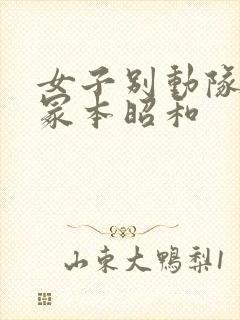 女子别動隊
冢本昭和
山東大鴨梨1